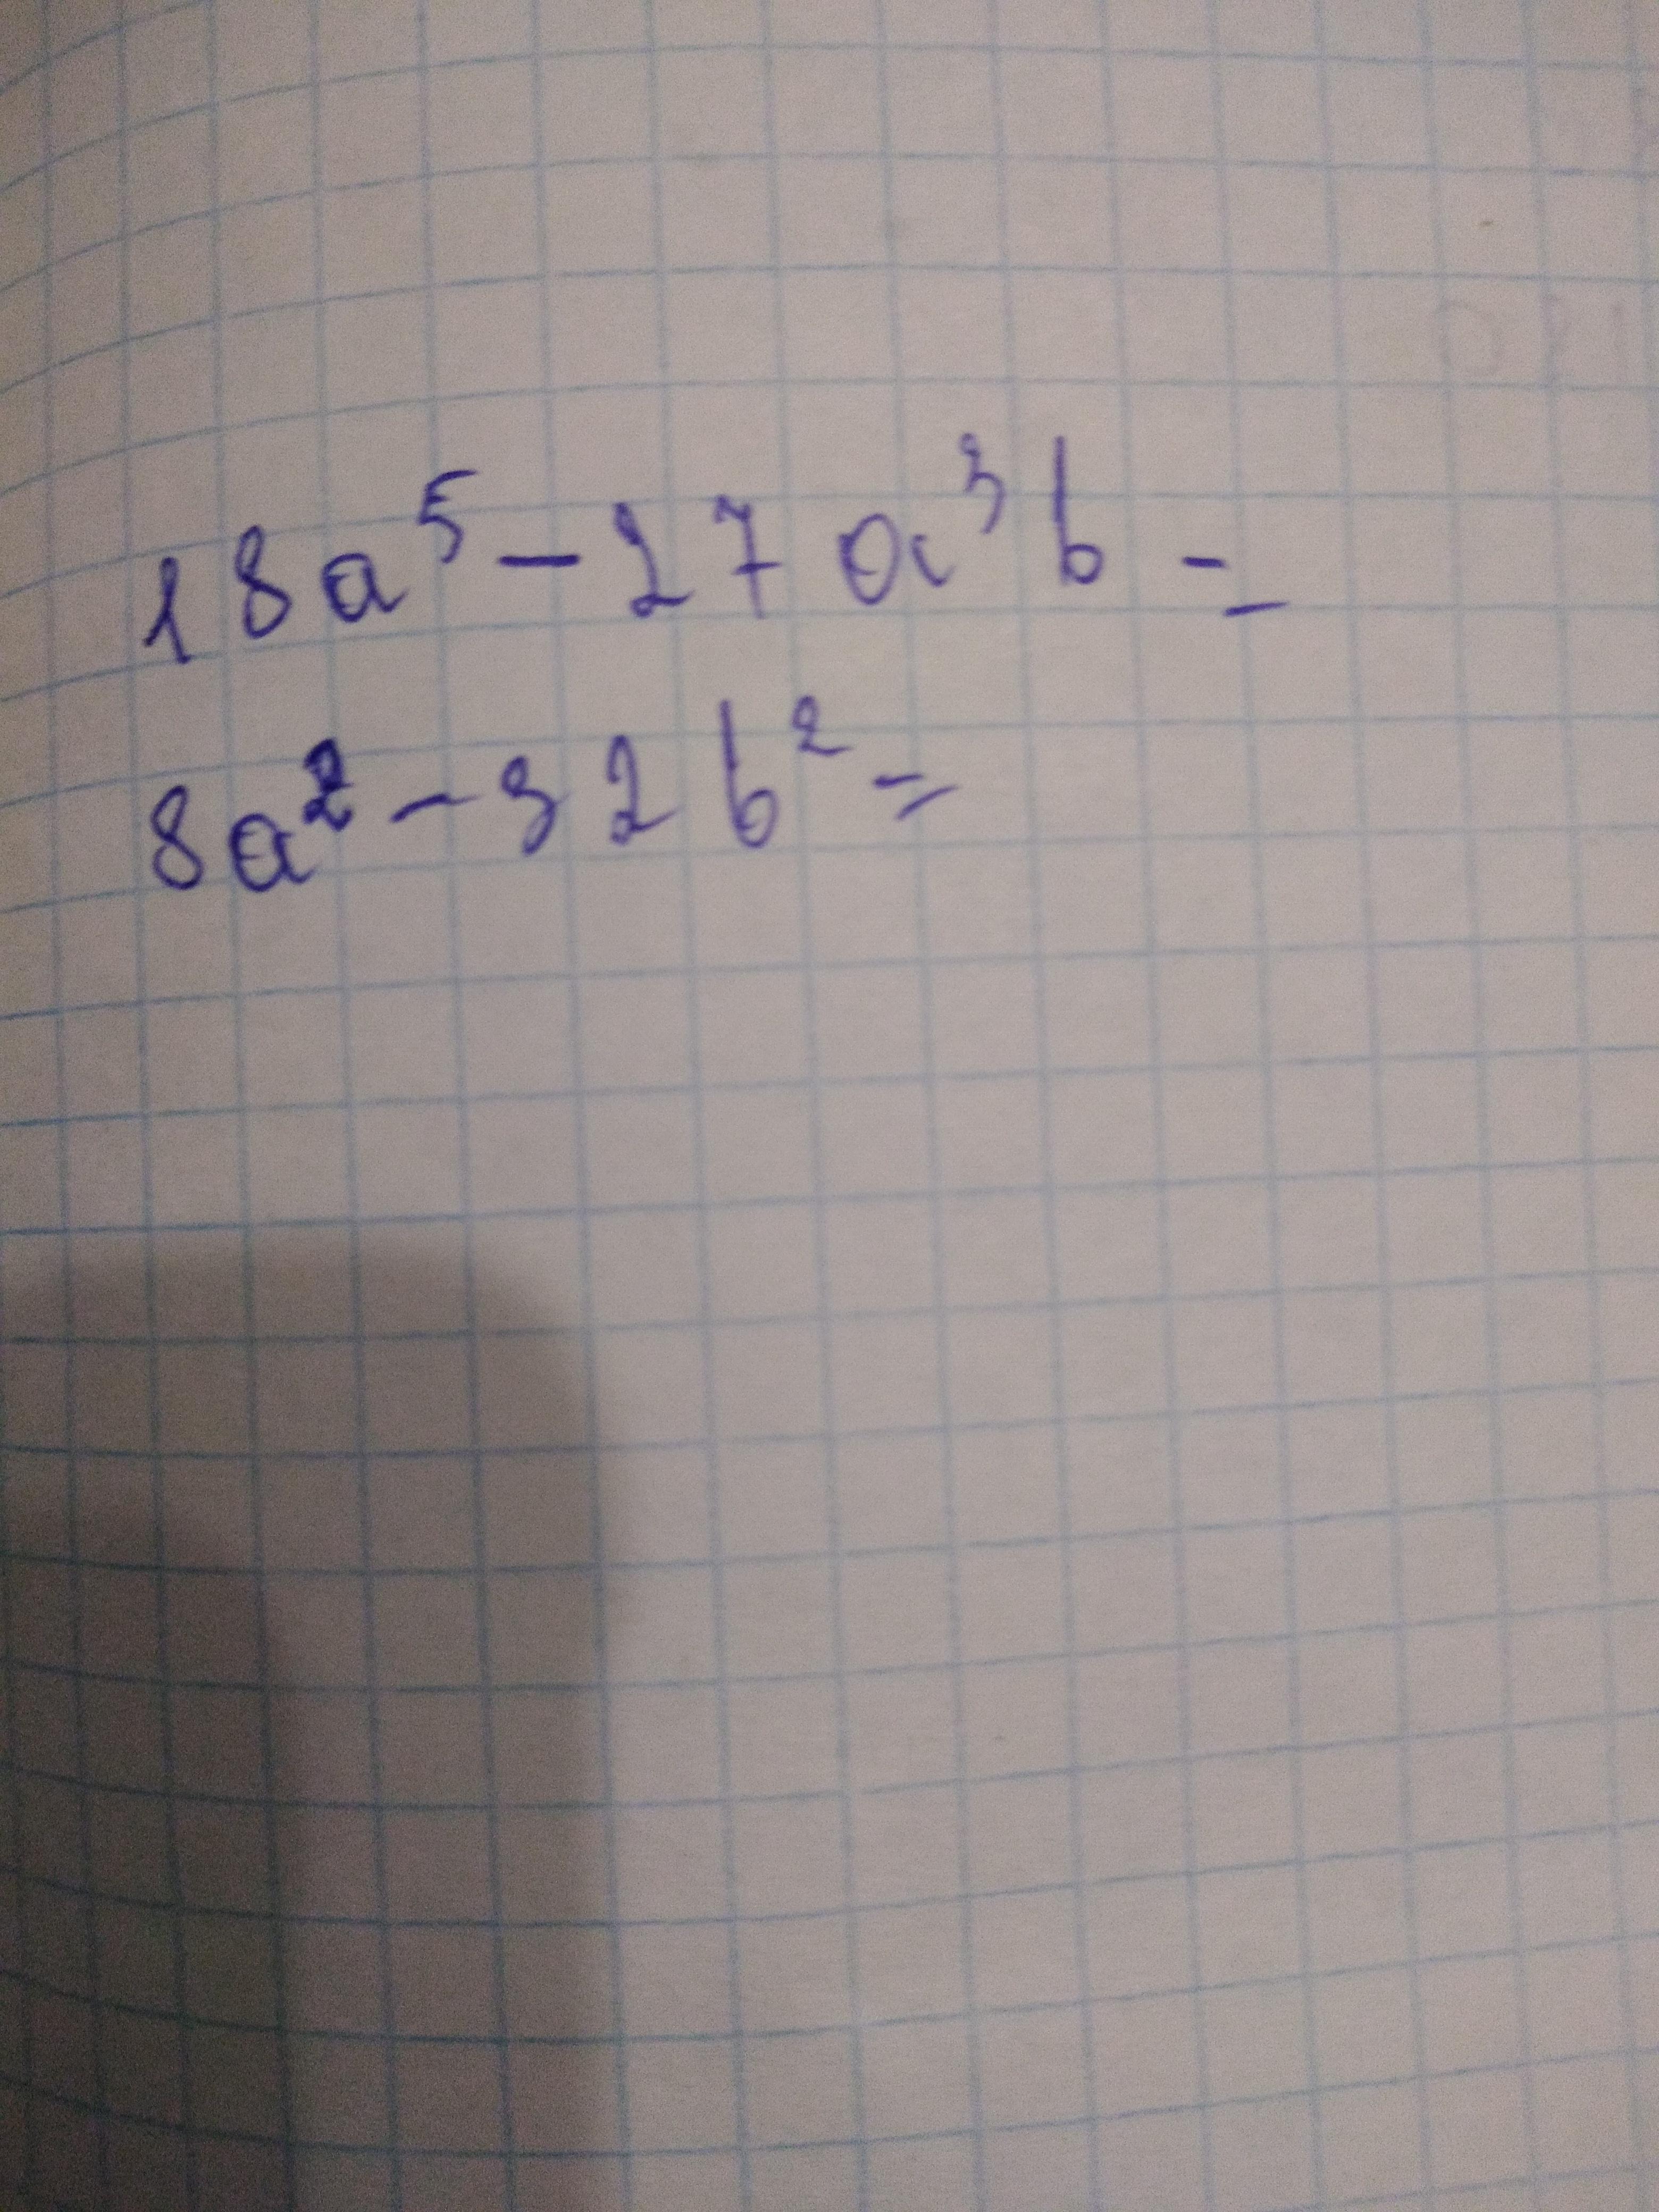 18a⁵ - 27a³b =
8a² - 32b² =